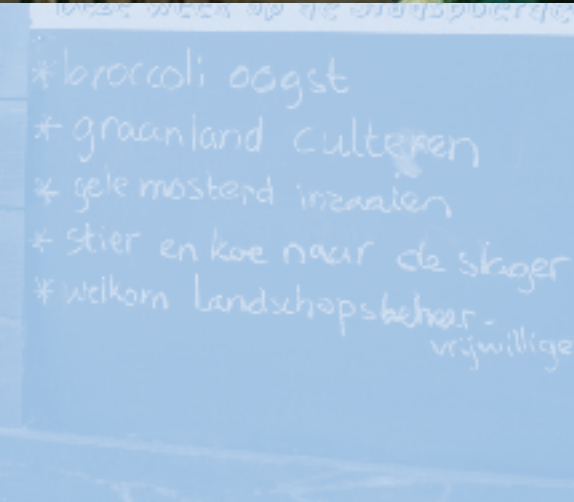 Deze week op de stadsboerderij
* broccoli oogst
* graanland culteren
* gele mosterd inzaaien
* stier en koe naar de slager
* welkom landschapsbeheer-
vrijwillige